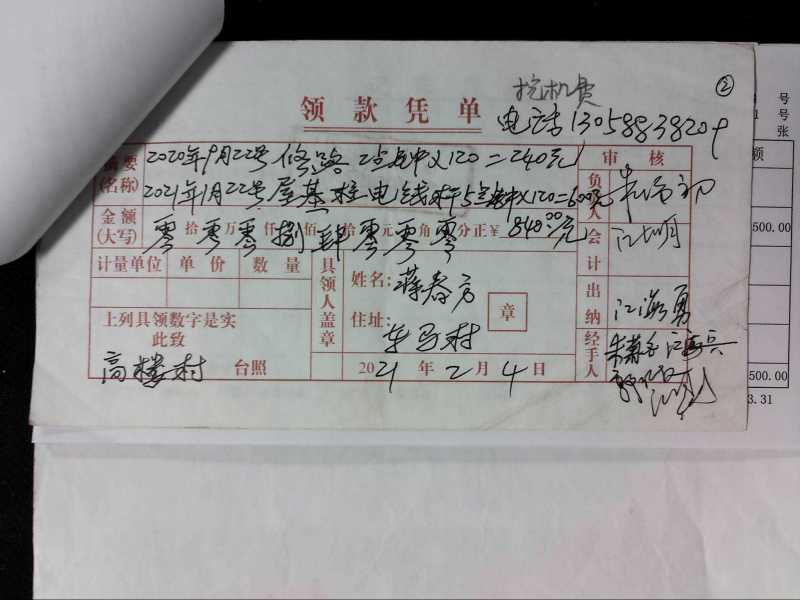 挖机费
②
领款凭单
电话13058838209
摘要(名称) 2020年9月22号修路2点钟×120=240元
2021年1月22号屋基栓电线杆5点钟×120=600元
审核
金额(大写) 零拾零万零仟捌佰肆拾零元零角零分正¥840.00元
负责人
会计
计量单位 单价 数量
具领人盖章
姓名:蒋春方
章
住址:车马村
出纳 江海勇
上列具领数字是实
此致
高楼村 台照
2021年2月4日
经手人
号
号
张
额
500.00
500.00
3.31